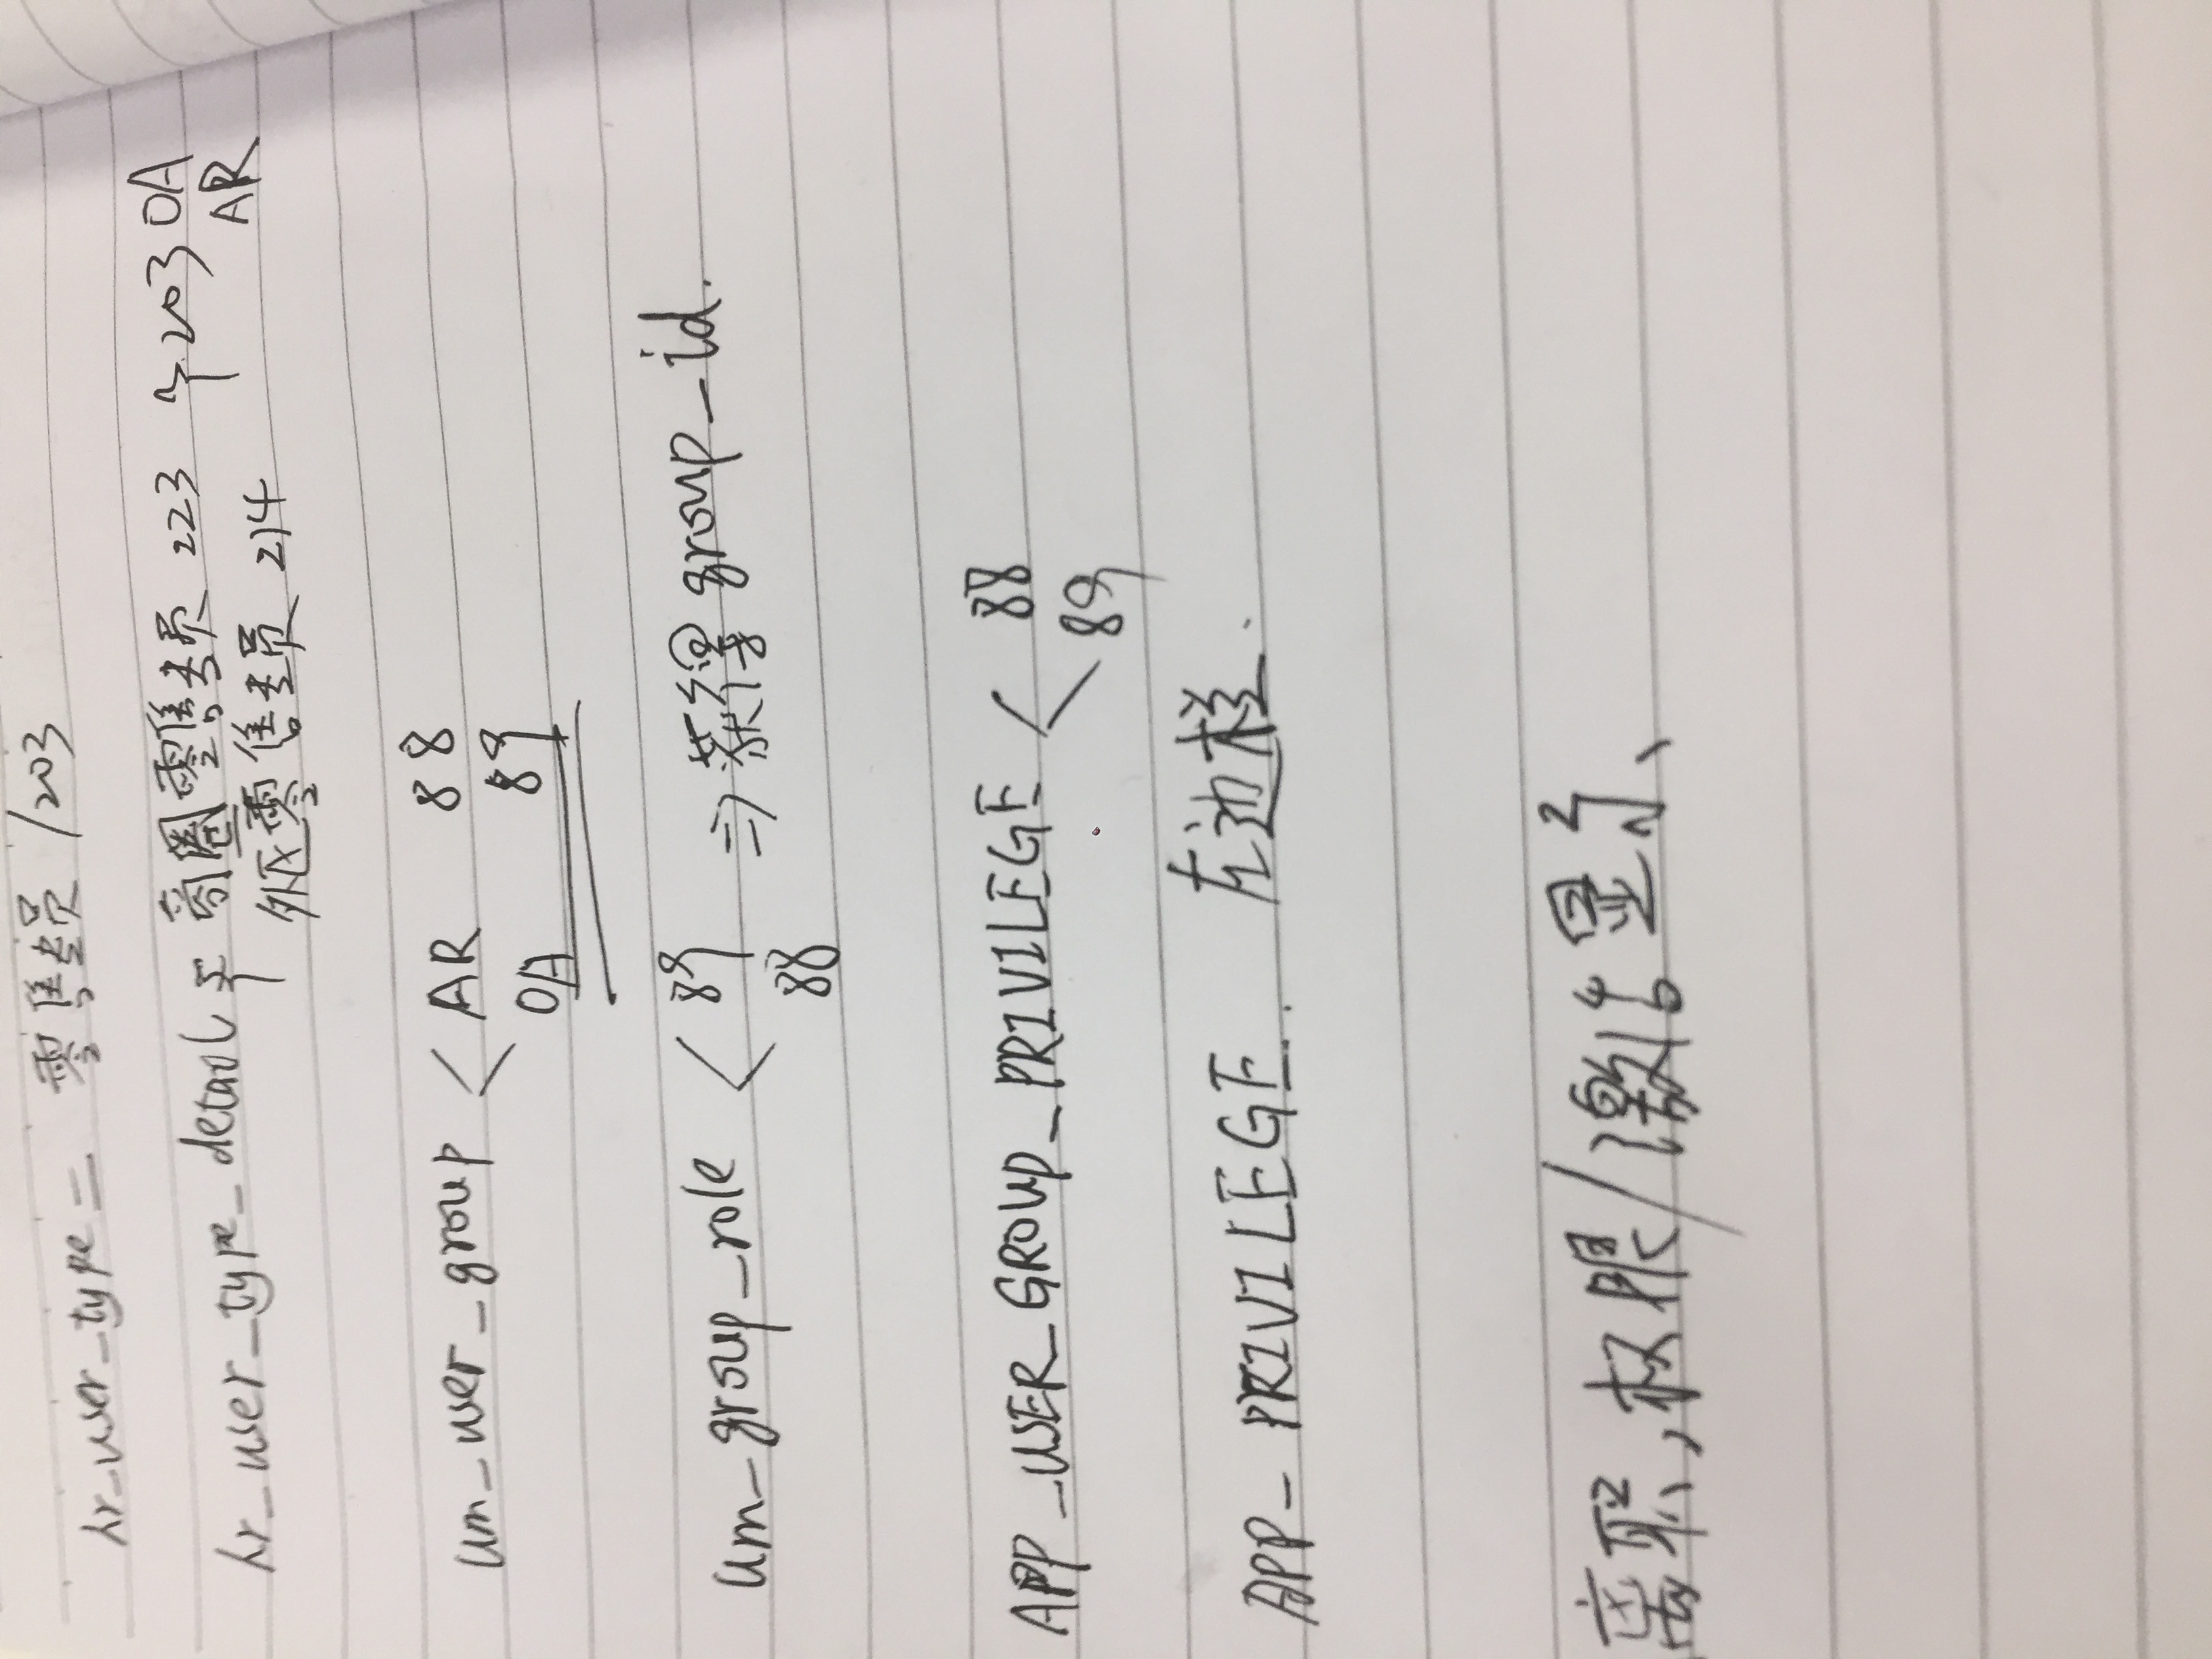 hr_user_type = 零售专员 /203
hr_user_type_detail { 商圈零售专员 223 } 203 OA
外区零售专员 214 AR
um_user_group < AR 88
OA 89
um_group_role < 89 => 获得 group_id.
88
APP_USER_GROUP_PRIVILEGE < 88
89
APP_PRIVILEGE. 左边栏.
离职,权限/激活显示